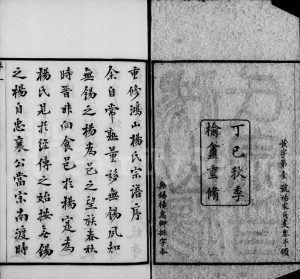 丁巳秋季
榆盦重脩
無錫楊志卿排字本
重修鴻山楊氏宗譜序
余自常熟量移無錫夙知
無錫之楊為邑之望族春秋
時晉向食邑於楊寔為
楊氏見於經傳之始按無錫
之楊自忠襄公當宋南渡時